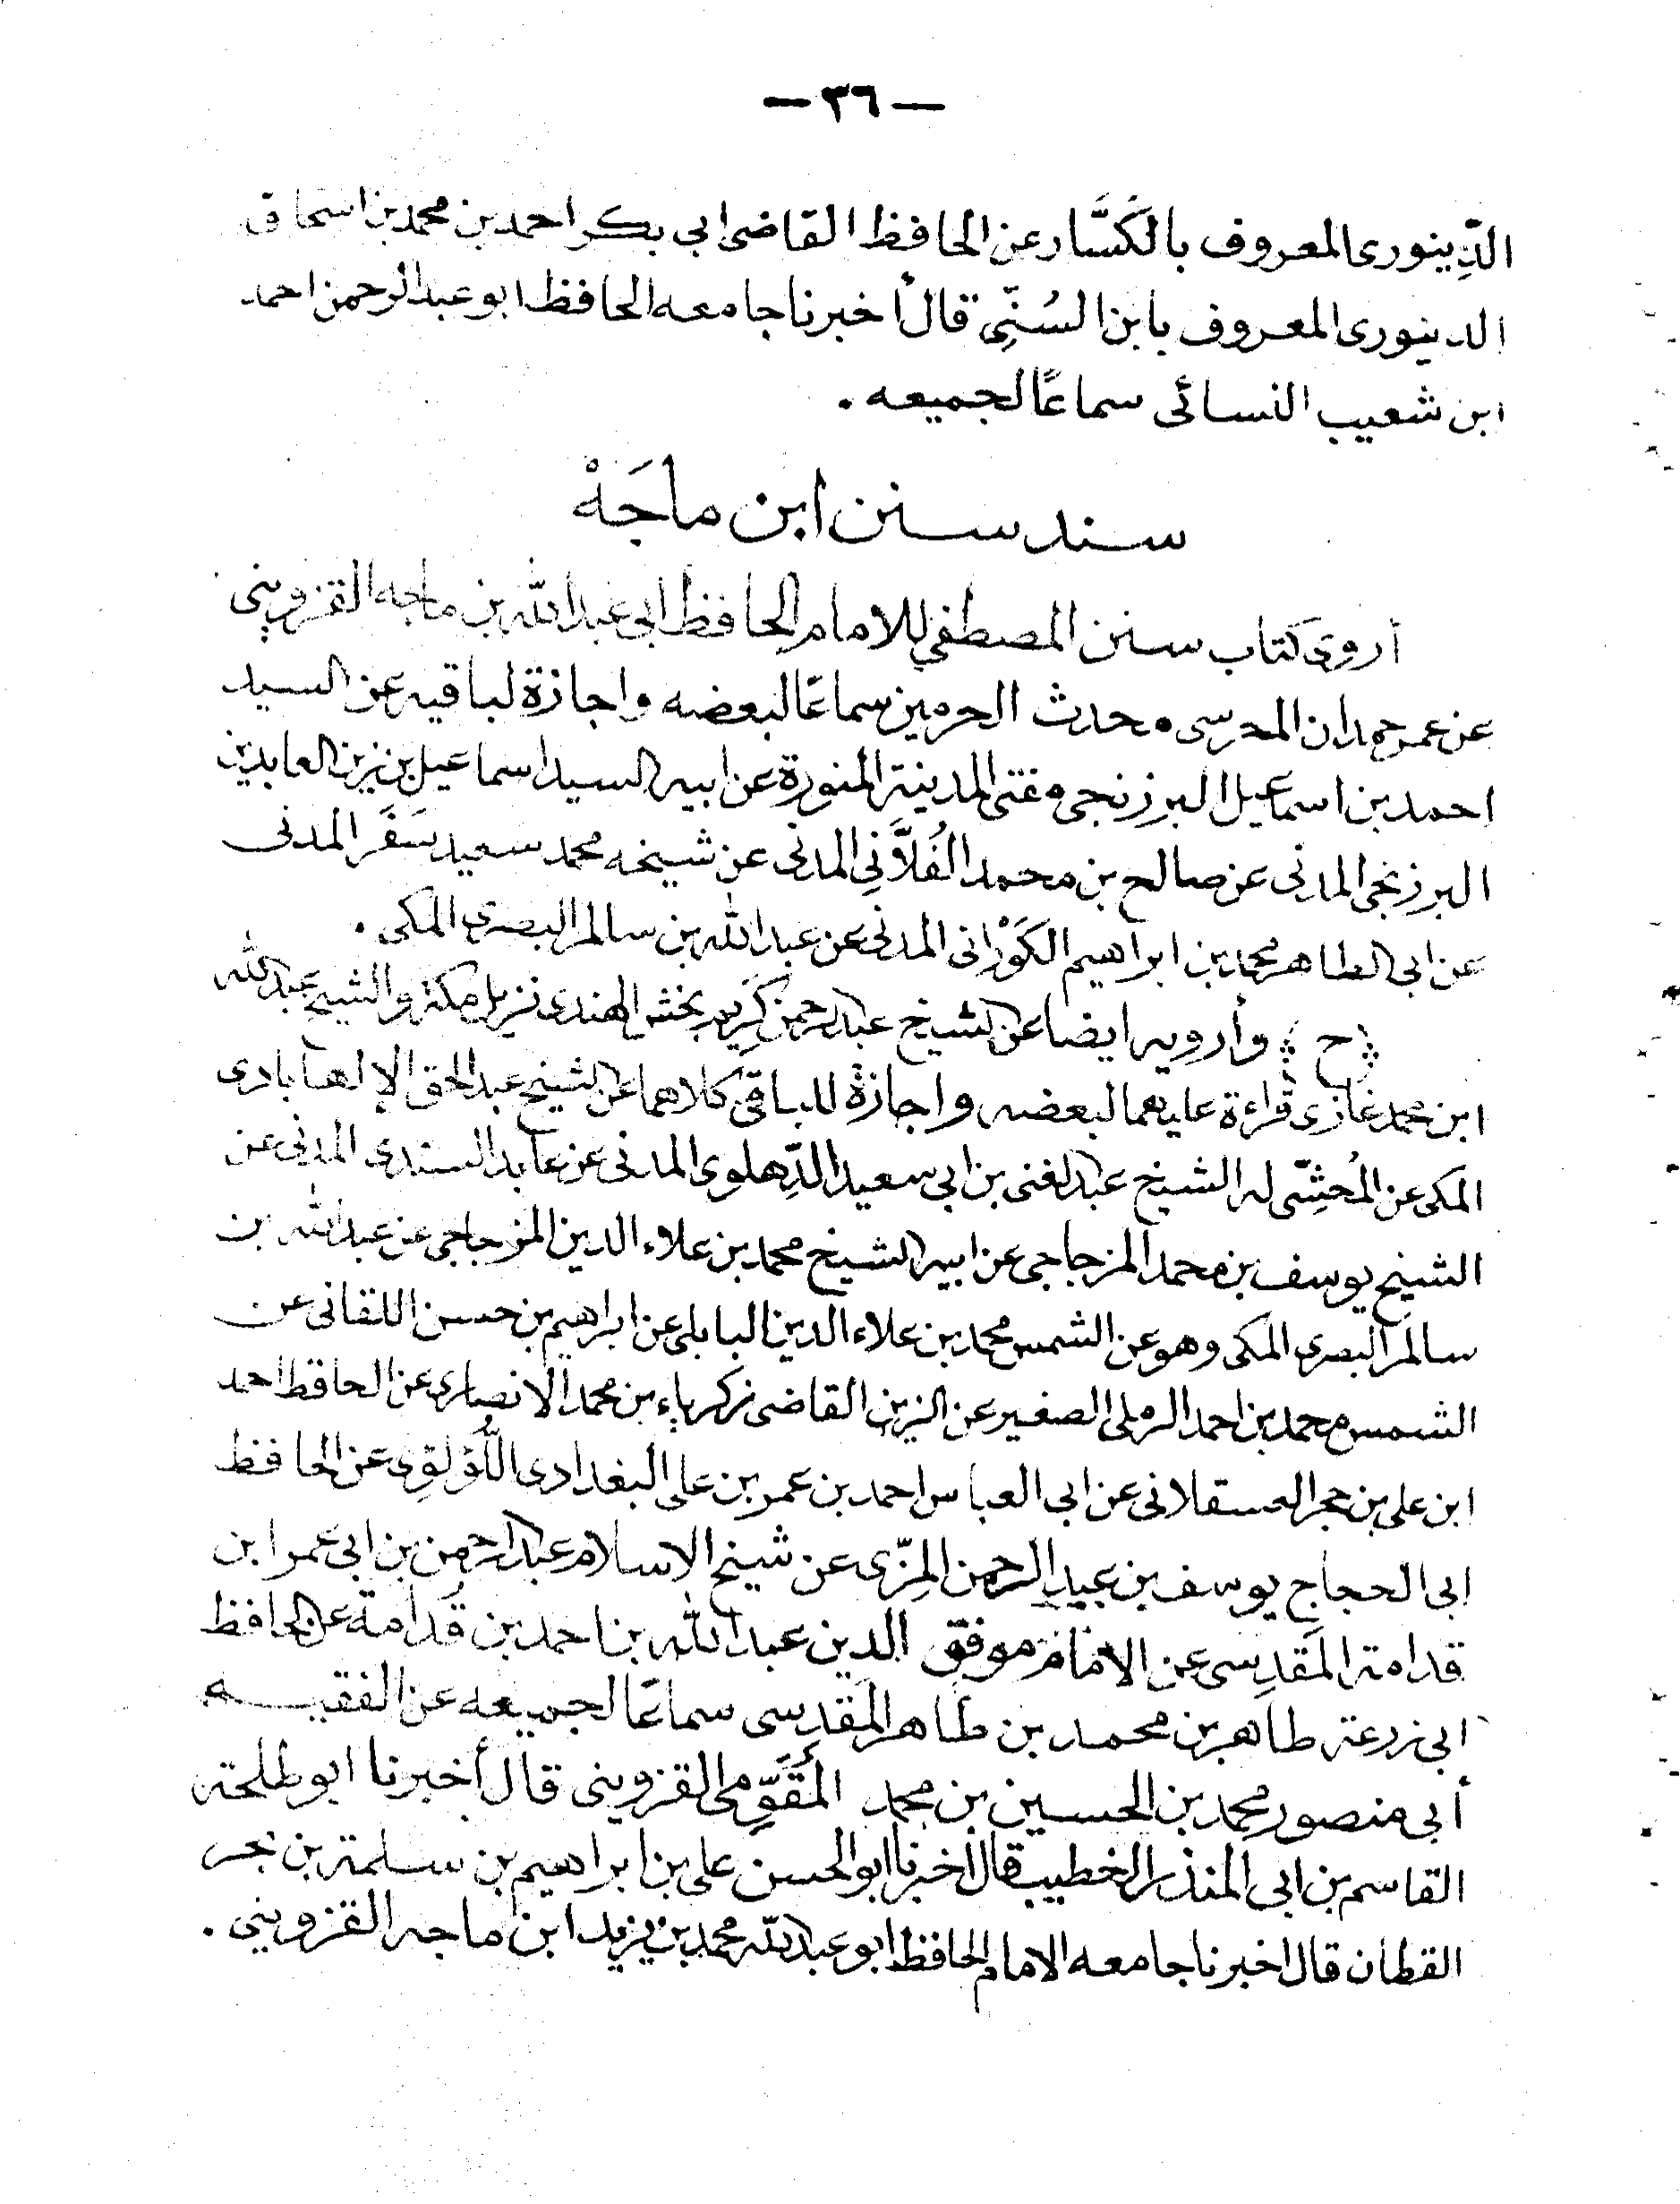 — ٣٦ —
الدِّينورى المعروف بالكَسَّار عن الحافظ القاضى ابى بكر احمد بن محمد بن اسحاق
الدينورى المعروف بابن السُنِّي قال أخبرنا جامعه الحافظ ابو عبد الرحمن احمد
ابن شعيب النسائى سماعًا لجميعه .
سند سنن ابن ماجَهْ
أروى كتاب سنن المصطفي للامام الحافظ ابى عبد الله بن ماجه القزويني
عن عمر حمدان المحرسى محدث الحرمين سماعًا لبعضه واجازة لباقيه عن السيد
احمد بن اسماعيل البرزنجى مفتى المدينة المنورة عن ابيه السيد اسماعيل بن زين العابدين
البرزنجى المدنى عن صالح بن محمد الفُلاَّنِي المدنى عن شيخه محمد سعيد سَفَر المدنى
عن ابى الطاهر محمد بن ابراهيم الكَوْرانى المدنى عن عبد الله بن سالم البصرى المكى .
(ح) وأرويه ايضا عن الشيخ عبد الرحمن كَرِيم بخش الهندى نزيل مكة والشيخ عبد الله
ابن محمد غازى قراءة عليهما لبعضه واجازة للباقى كلاهما عن الشيخ عبد الحق الإلهابادى
المكى عن المُحشّى له الشيخ عبد الغنى بن ابى سعيد الدِّهلوى المدنى عن عابد السندى المدنى عن
الشيخ يوسف بن محمد المزجاجى عن ابيه الشيخ محمد بن علاء الدين المزجاجى عن عبد الله بن
سالم البصرى المكى وهو عن الشمس محمد بن علاء الدين البابلى عن ابراهيم بن حسن اللقانى عن
الشمس محمد بن احمد الرملى الصغير عن الزين القاضى زكرياء بن محمد الانصارى عن الحافظ احمد
ابن على بن حجر العسقلانى عن ابى العباس احمد بن عمر بن على البغدادى اللُّؤلؤِى عن الحافظ
ابى الحجاج يوسف بن عبد الرحمن المِزّى عن شيخ الاسلام عبد الرحمن بن ابى عمر ابن
قدامة المَقدِسى عن الامام موفق الدين عبد الله بن احمد بن قُدامة عن الحافظ
ابى زرعة طاهر بن محمد بن طاهر المَقدِسى سماعًا لجميعه عن الفقيه
أبى منصور محمد بن الحسين بن محمد المُقَوِّمى القزوينى قال أخبرنا ابو طلحة
القاسم بن ابى المنذر الخطيب قال اخبرنا ابو الحسن على بن ابراهيم بن سلمة بن بحر
القطان قال اخبرنا جامعه الامام الحافظ ابو عبد الله محمد بن يزيد ابن ماجه القزويني .